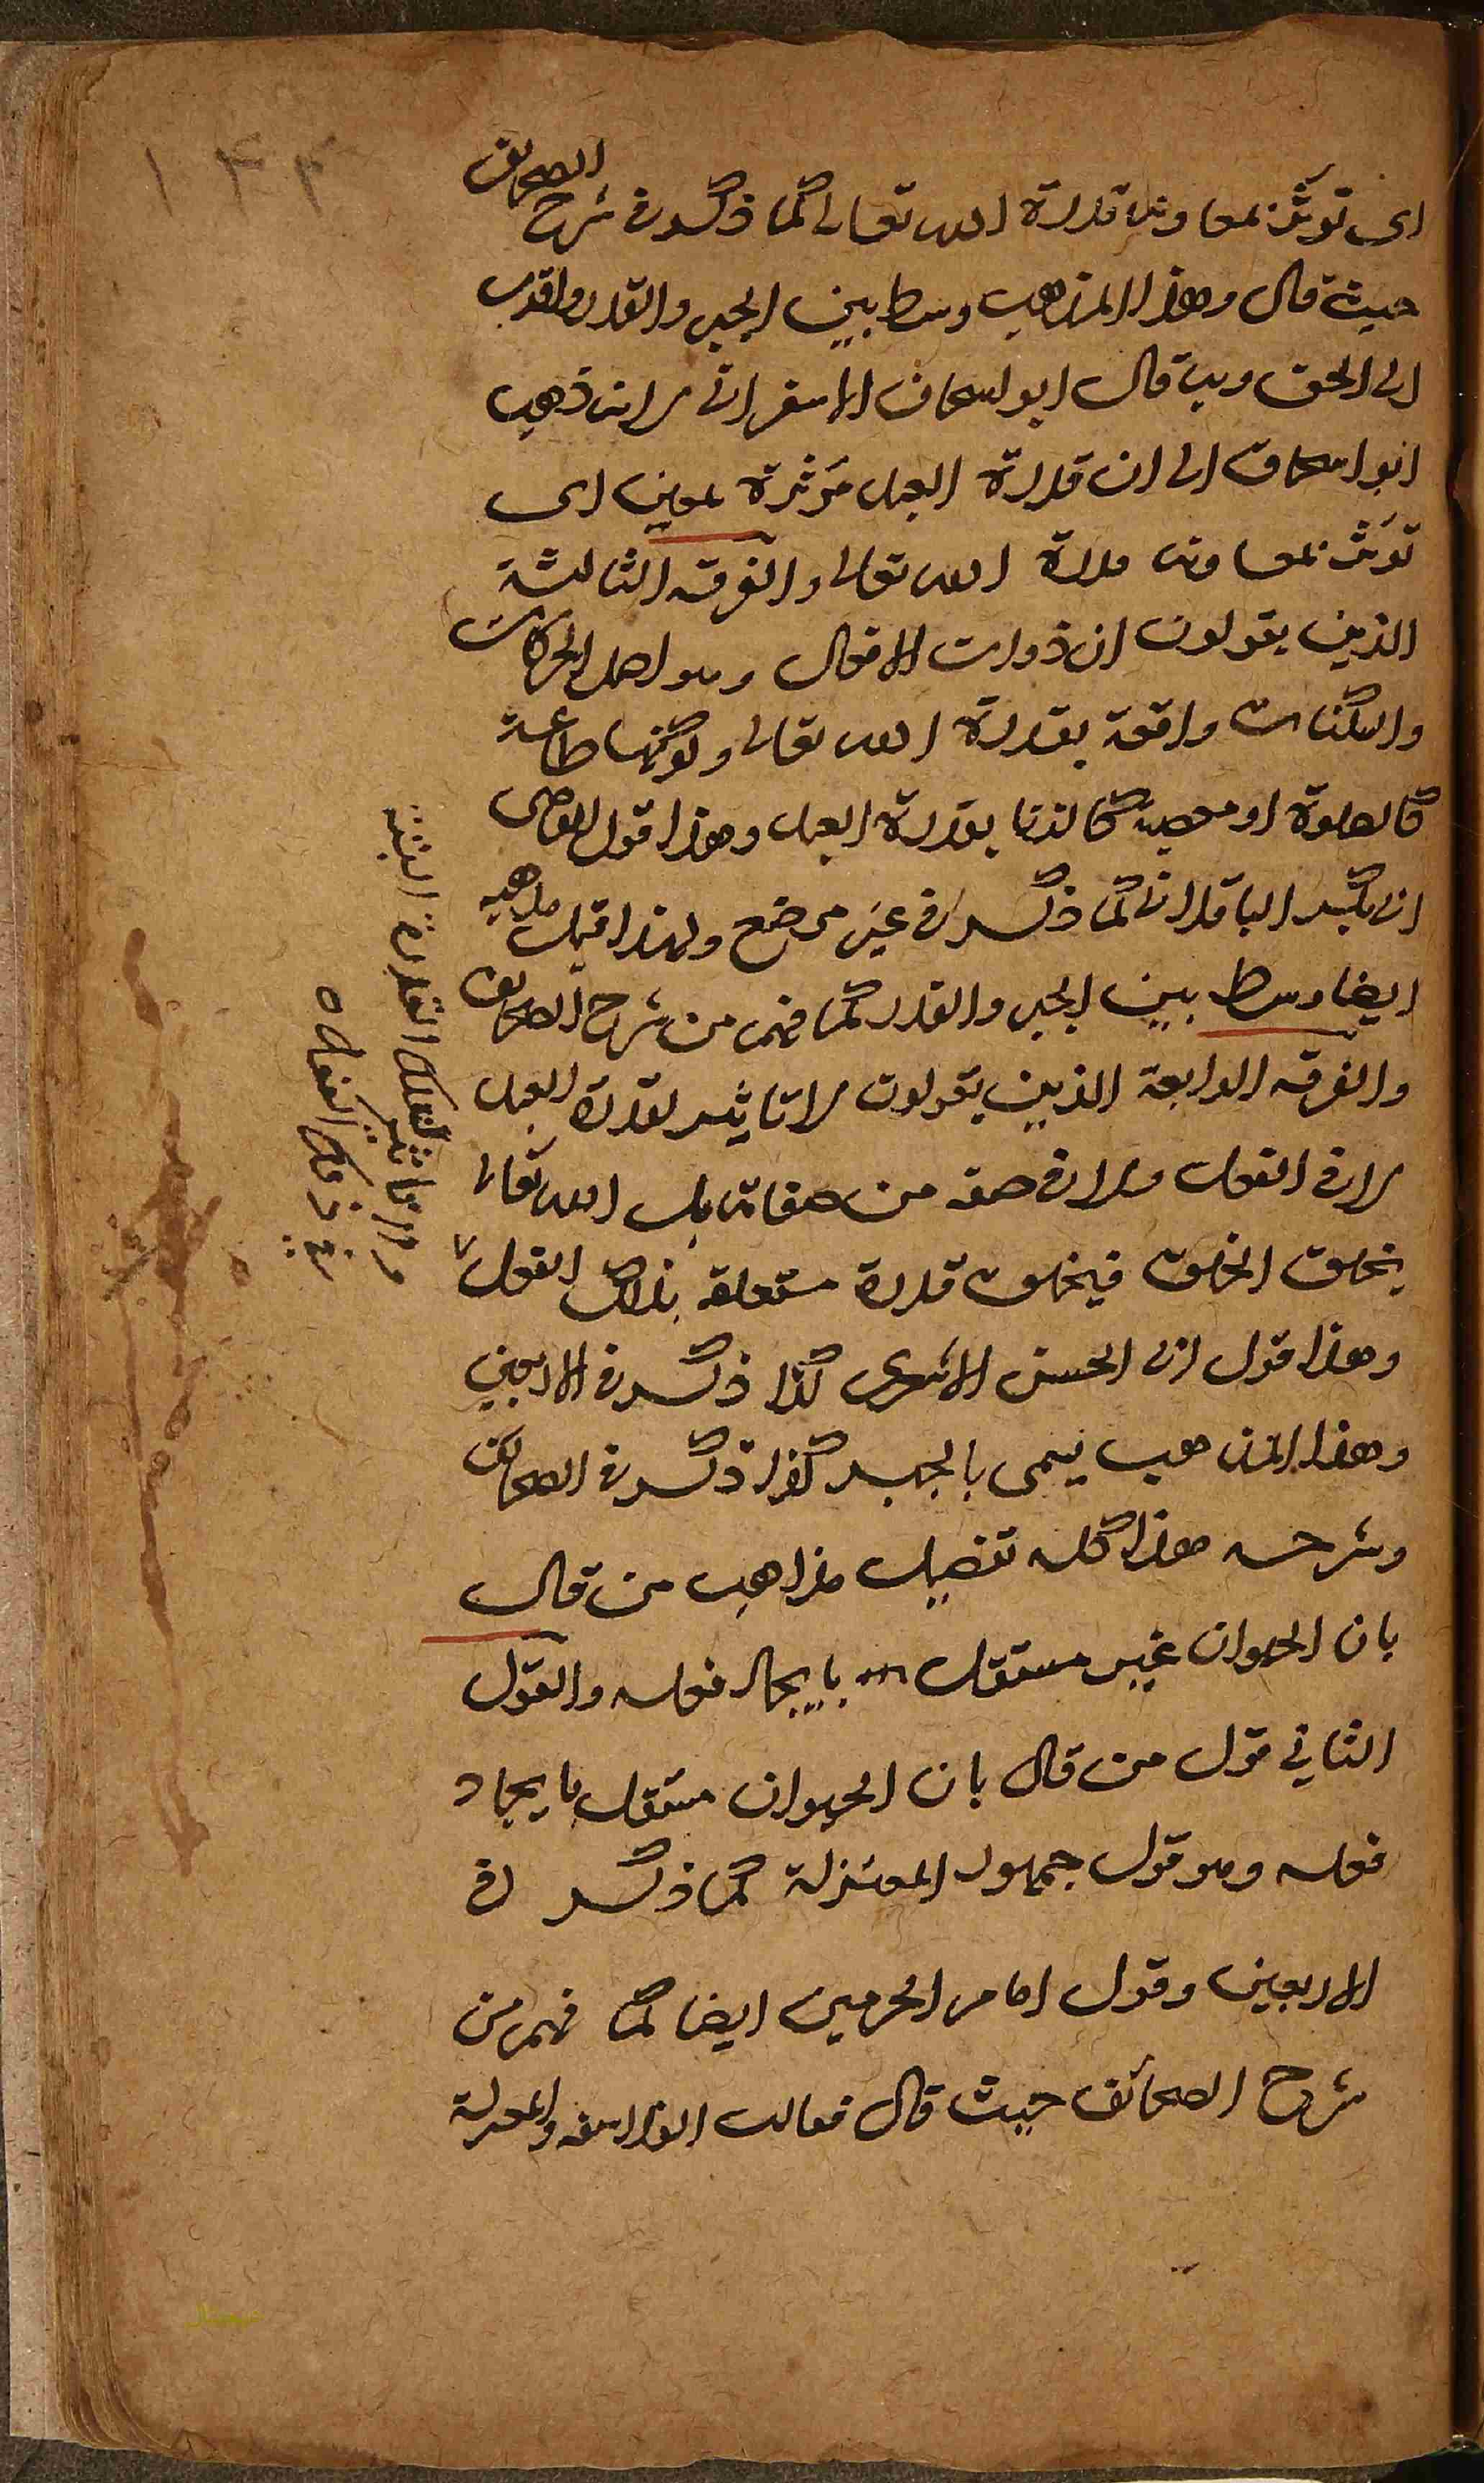 اى تؤثر بمعاونة قدرة الله تعالى كما ذكر فى شرح الصحائف
حيث قال وهذا المذهب وسط بين الجبر والقدر واقرب
الى الحق وبه قال ابو اسحاق الاسفرائى لانه ذهب
ابو اسحاق الى ان قدرة العبد مؤثرة بمعين اى
تؤثر بمعاونة قدرة الله تعالى والفرقه الثالثة
الذين يقولون ان ذوات الافعال وهو اصل الحركات
والسكنات واقعة بقدرة الله تعالى وكونها طاعة
كالصلوة او معصية كالزنا بقدرة العبد وهذا قول القاضى
ابى بكر الباقلانى كما ذكر فى غير موضع ولهذا قيل مذهبه
ايضا وسط بين الجبر والقدر كما فهم من شرح الصحائف
والفرقه الرابعة الذين يقولون لا تاثير لقدرة العبد
لا فى الفعل ولا فى صفه من صفاته بل الله تعالى
يخلق الخلق فيخلق قدرة متعلقه بذلك الفعل
وهذا قول ابى الحسن الاشعرى كذا ذكر فى الاربعين
وهذا المذهب يسمى بالجبر كذا ذكر فى الصحائف
وشرحه هذا كله تفصيل مذاهب من قال
بان الحيوان غير مستقل بايجاد فعله والقول
الثاني قول من قال بان الحيوان مستقل بايجاد
فعله وهو قول جمهور المعتزلة كما ذكر فى
الاربعين وقول امام الحرمين ايضا كما فهم من
شرح الصحائف حيث قال فقالت الفلاسفه والمعتزلة
ولا تاثير لتلك القدرة البتة
فى ذلك الفعل ه
١٤٤